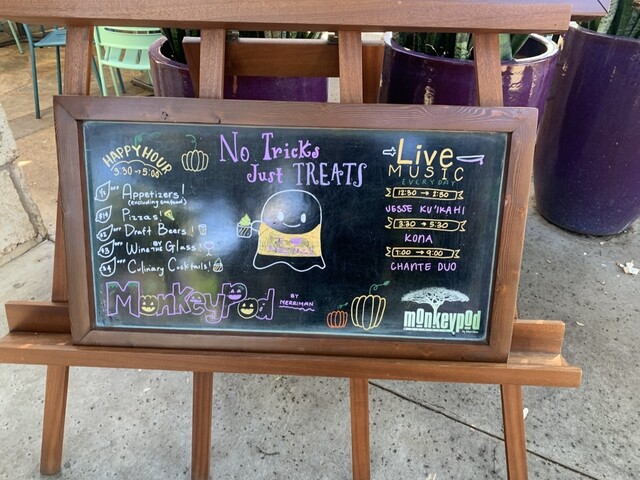 HAPPY HOUR
3:30 → 5:00
Appetizers!
(excluding seafood)
Pizzas!
Draft Beers!
Wine BY THE Glass!
Culinary Cocktails!
No Tricks
Just TREATS
Live
MUSIC
EVERYDAY
12:30 → 2:30
JESSE KU'IKAHI
3:30 → 5:30
KONA
7:00 → 9:00
CHANTE DUO
MonkeyPod
BY
MERRIMAN
monkeypod